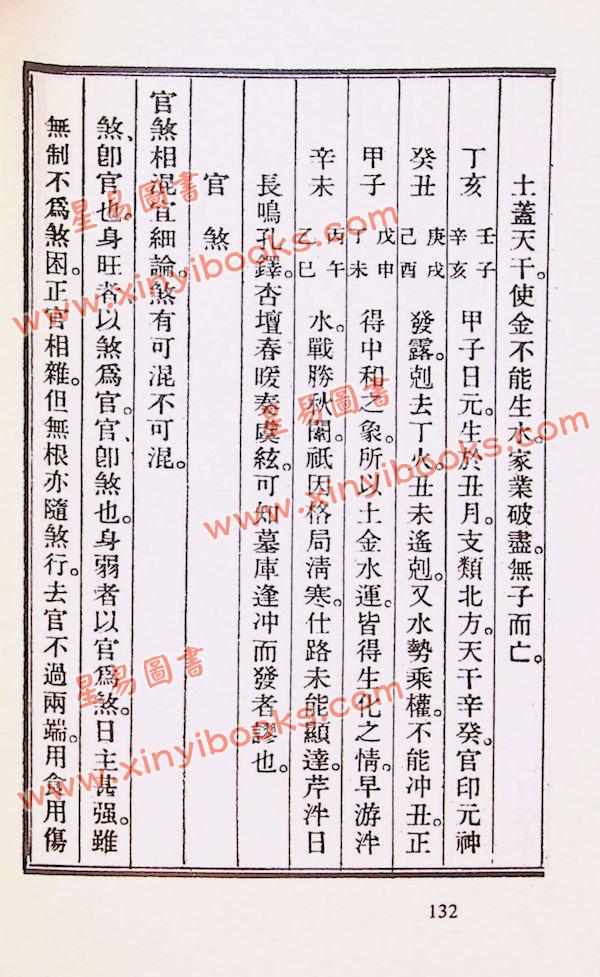 土蓋天干。使金不能生水。家業破盡。無子而亡。
丁亥 壬子 辛亥 甲子日元。生於丑月。支類北方。天干辛癸。官印元神
癸丑 庚戌 己酉 發露。剋去丁火。丑未遙剋。又水勢乘權。不能冲丑。正
甲子 戊申 丁未 得中和之象。所以土金水運。皆得生化之情。早游泮
辛未 丙午 乙巳 水。戰勝秋闈。祇因格局淸寒。仕路未能顯達。芹泮日
長鳴孔鐸。杏壇春暖奏虞絃。可知墓庫逢冲而發者謬也。
官煞
官煞相混宜細論。煞有可混不可混。
煞、卽官也。身旺者以煞爲官。官、卽煞也。身弱者以官爲煞。日主甚强。雖
無制不爲煞困。正官相雜。但無根亦隨煞行。去官不過兩端。用食用傷
132
星易圖書
www.xinyibooks.com
星易圖書
www.xinyibooks.com
星易圖書
www.xinyibooks.com